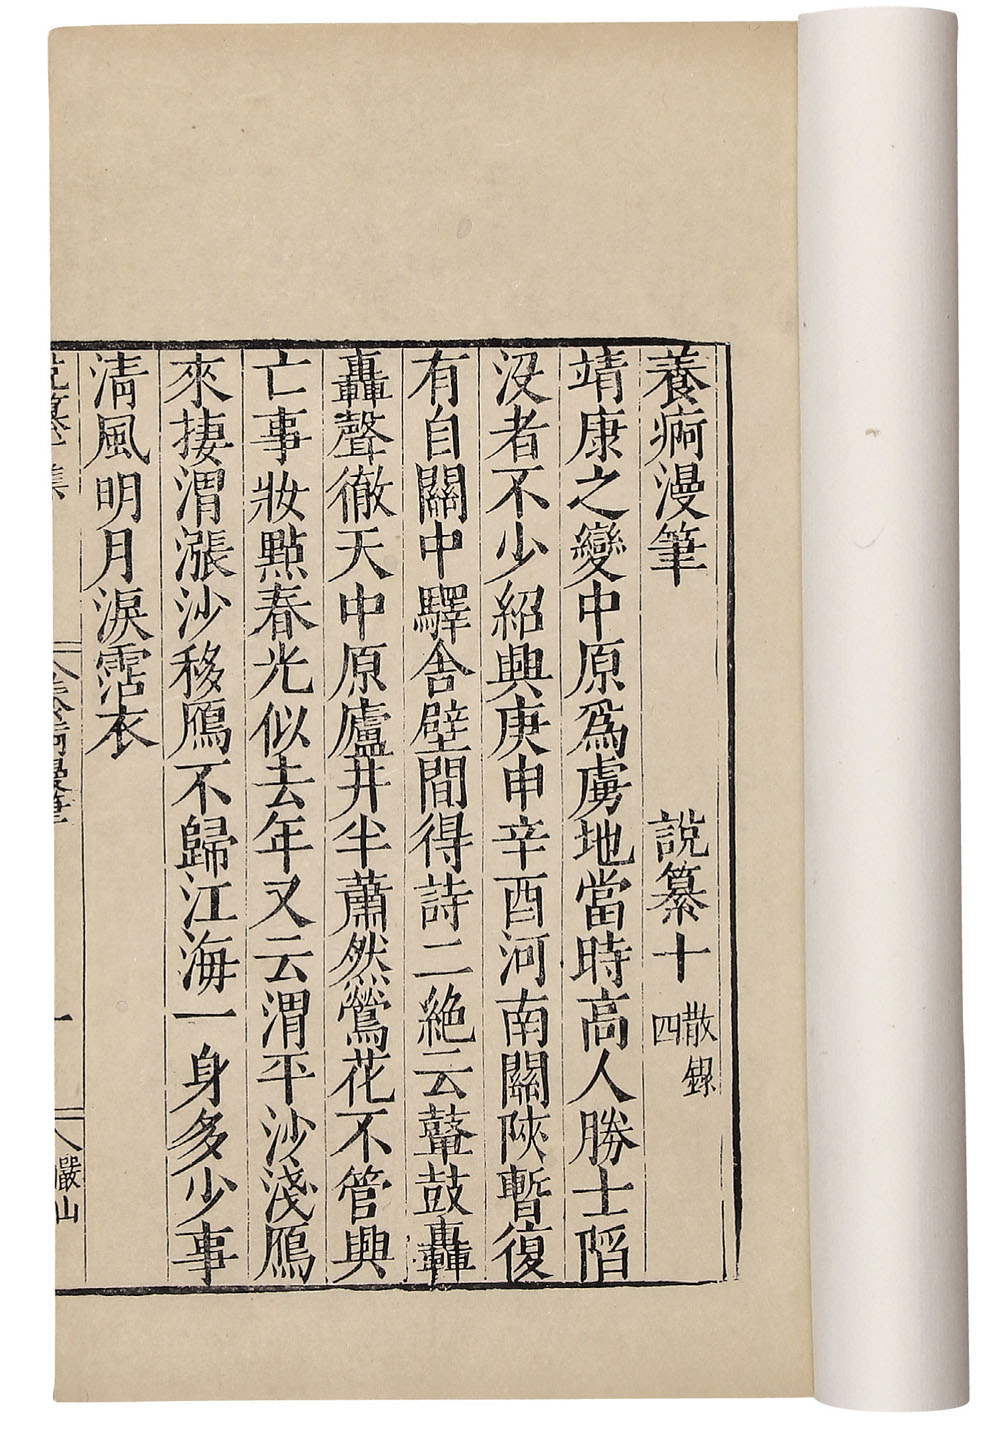 養痾漫筆 說纂十 散錄四
靖康之變中原爲虜地當時高人勝士陷
没者不少紹興庚申辛酉河南關陝暫復
有自關中驛舍壁間得詩二絶云鼙鼓轟
轟聲徹天中原廬井半蕭然鶯花不管興
亡事妝點春光似去年又云渭平沙淺鴈
來捿渭漲沙移鴈不歸江海一身多少事
清風明月淚霑衣
養痾漫筆 一 儼山